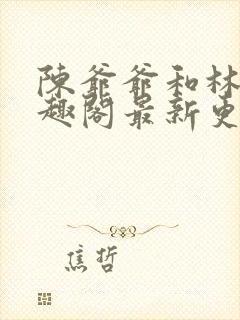 陳爺爺和林
趣閣最新更
焦哲